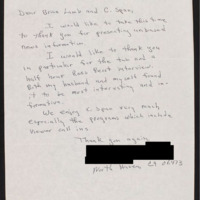 Dear Brian Lamb and C-Span,
I would like to take this time
to thank you for presenting unbiased
news information.
I would like to thank you
in particular for the two and a
half hour Ross Perot interview.
Both my husband and myself found
it to be most interesting and in-
formative.
We enjoy C-Span very much
especially the programs which include
viewer call ins.
Thank you again
North Haven, Ct